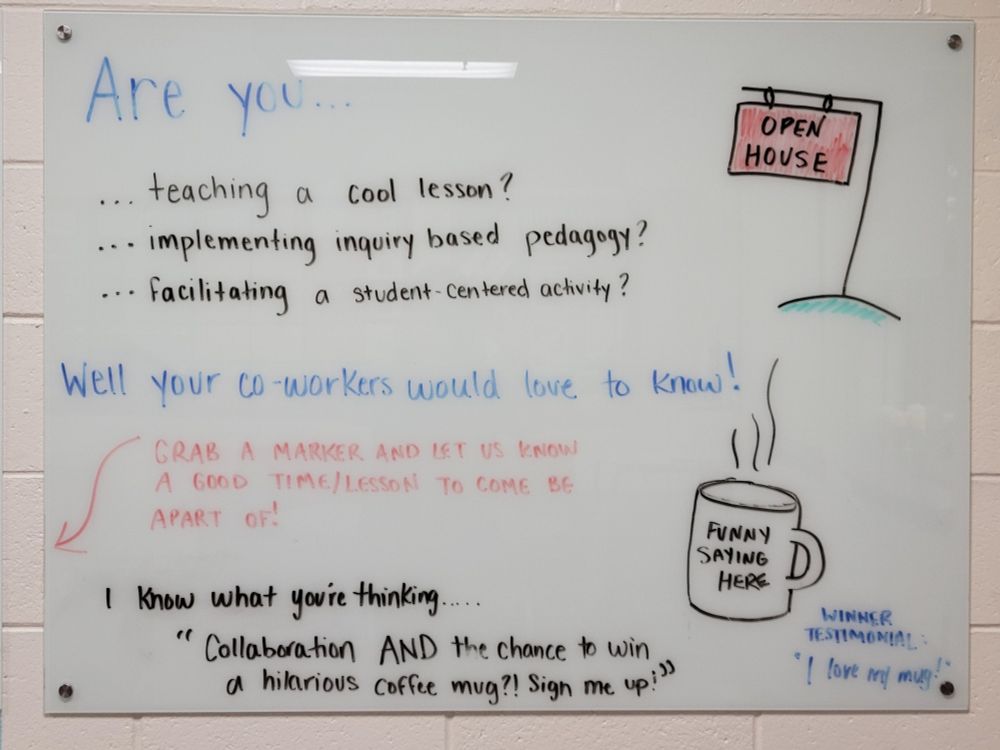 Are you...
... teaching a cool lesson?
... implementing inquiry based pedagogy?
... facilitating a student-centered activity?
OPEN
HOUSE
Well your co-workers would love to know!
GRAB A MARKER AND LET US KNOW
A GOOD TIME/LESSON TO COME BE
APART OF!
FUNNY
SAYING
HERE
I know what you're thinking.....
"Collaboration AND the chance to win
a hilarious coffee mug?! Sign me up!"
WINNER
TESTIMONIAL:
"I love my mug!"